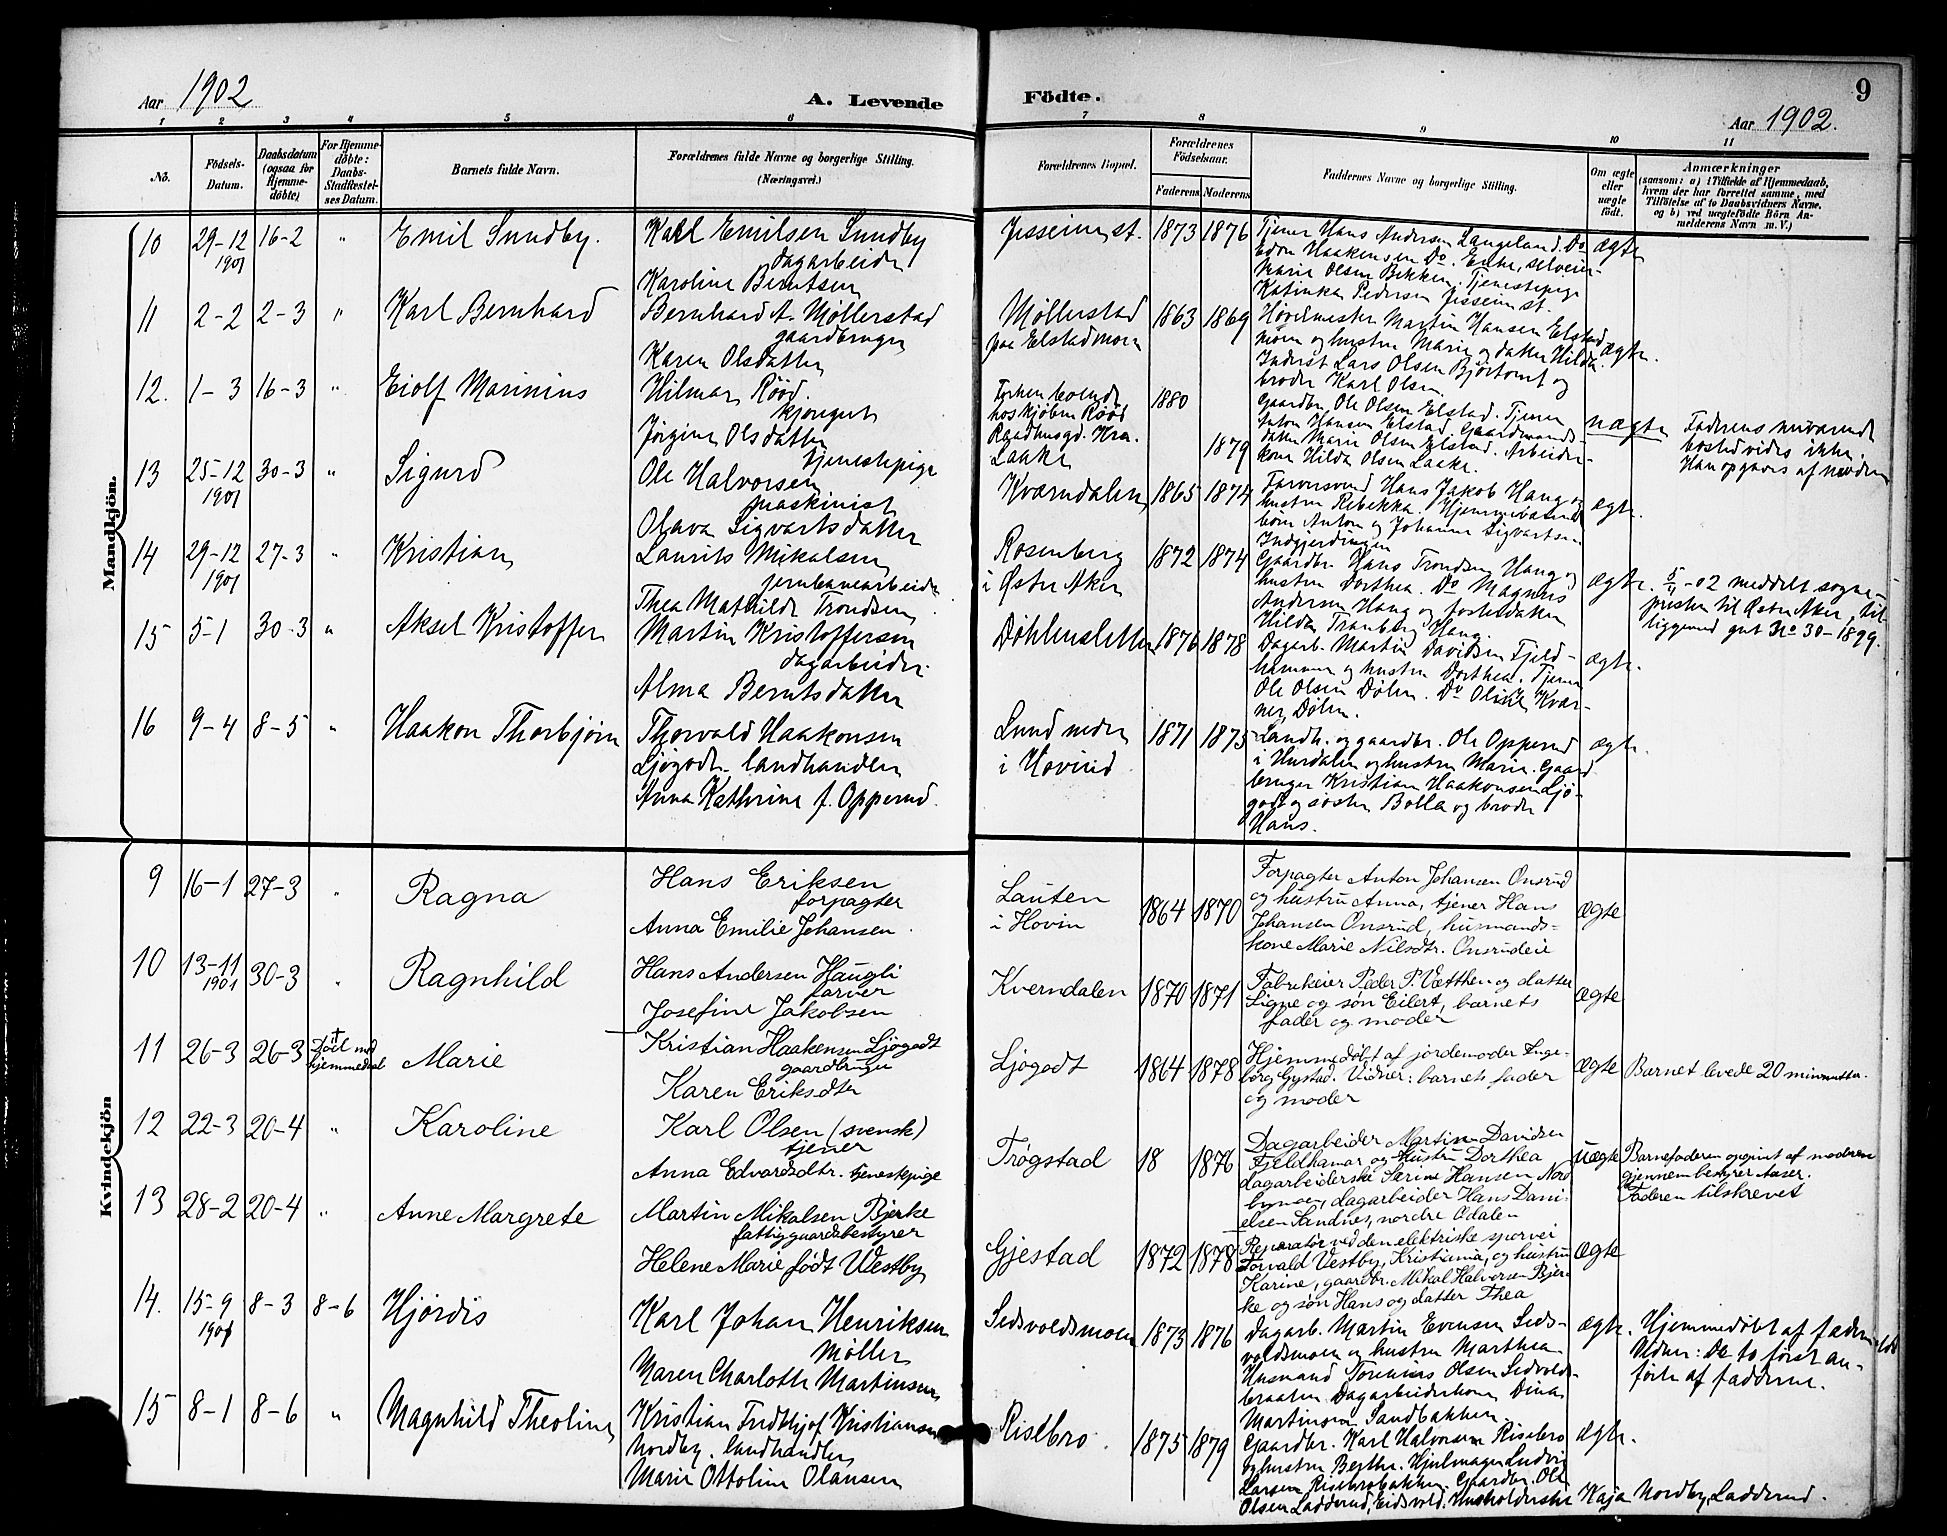 Aar 1902
A. Levende
Födte.
9
Aar 1902.
1 2 3 4 5 6 7 8 9 10 11
No.
Födsels-Datum.
Daabsdatum (ogsaa for Hjemme-döbte)
For Hjemme-döbte: Daabs-Stadfæstel-ses Datum.
Barnets fulde Navn.
Forældrenes fulde Navne og borgerlige Stilling.
(Næringsvei.)
Forældrenes Bopæl.
Forældrenes Födselsaar.
Faderens Moderens
Faddernes Navne og borgerlige Stilling.
Om ægte eller uægte födt.
Anmærkninger
(saasom: a) i Tilfælde af Hjemmedaab, hvem der har forrettet samme, med Tilföielse af to Daabsvidners Navne, og b) ved uægtefödte Börn An-melderens Navn m. V.)
Mandkjön.
10 29-12 1901 16-2 " Emil Sundby.
Karl Emilsen Sundby
dagarbeider
Karoline Berntsen
Jesseim st. 1873 1876
Tjener Hans Andersen Langeland. Do
Edvn Haakensen Do. Enke, selveier-
Marie Olsen Bekken. Tjenestepige
Katinka Pedersen Jesseim st.
ægte
11 2-2 2-3 " Karl Bernhard
Bernhard A. Møllerstad
gaardbruger
Karen Olsdatter
Møllerstad
paa Elstadmoen
1863 1869
Høvelmester Martin Hansen Elstad
moen og hustru Marie og datter Hilda.
Inderst Lars Olsen Bjørtomt og
broder Karl Olsen
ægte.
12. 1-3 16-3 " Eiolf Marinius
Hilmar Røød.
Jørgine Olsdatter
tjenestepige
hos kjøbm Røød
Raadhusgd. Kra.
Laake
1880
1879
Gaardbr. Ole Olsen Elstad. Tjener
Anton Hansen Elstad. Gaardmands-
datter Marie Olsen Elstad. Arbeider-
kone Hilda Olsen Laake.
uægte
Faderens nuværende
bosted vides ikke.
Han opgaves af moderen
13 25-12 1901 30-3 " Sigurd
Ole Halvorsen
maskinist
Olava Sigvartsdatter
Kværndalen 1865 1874
Farversvend Hans Jakob Haug og
hustru Rebekka. Hjemmeværende
børn Anton og Johanne Sigvartsen
Indgjerdingen
ægte.
14 29-12 1901 27-3 " Kristian
Laurits Mikalsen
jernbanearbeider
Thea Mathilde Trondsen
Rosenberg
i Østre Aker
1872 1874
Gaardbr. Hans Trondsen Haug og
hustru Dorthea. Do Magnus
Andersen Haug og fosterdatter
Hilda Tranberg Haug.
ægte.
5/4-02 meddelt sogne-
presten til Østre Aker, til-
liggerend gut No 30-1899.
15 5-1 30-3 " Aksel Kristoffer
Martin Kristoffersen
dagarbeider.
Alma Berntsdatter
Døhlensletten 1876 1878
Dagarb. Martin Davidsen Fjeld-
hammer og hustru Dorthea. Tjener
Ole Olsen Dølen. Do Oline Kvær-
ner, Dølen.
ægte.
16 9-4 8-5 " Haakon Thorbjørn
Thorvald Haakonsen
Ljøgodt landhandler
Anna Kathrine f. Opperud.
Lund nedre
i Hovind
1871 1875
Landh. og gaardbr. Ole Opperud
i Hurdalen og hustru Marie. Gaard
bruger Kristian Haakonsen Ljø-
godt og søster Bolla og broder
Hans.
ægte.
Kvindekjön
9 16-1 27-3 " Ragna
Hans Eriksen
forpagter
Anna Emilie Johansen.
Lauten
i Hovin
1864 1870
Forpagter Anton Johansen Onsrud
og hustru Anna, tjener Hans
Johansen Onsrud, husmands-
kone Marie Nilsdtr. Onsrudeie
ægte
10 13-11 1901 30-3 " Ragnhild
Hans Andersen Haugli
farver
Josefine Jakobsen
Kverndalen 1870 1871
Fabrikeier Peder P. Vætthen og datter
Signe og søn Eilert, barnets
fader og moder
ægte
11 26-3 26-3 † Død ved hjemmedaab Marie
Kristian Haakensen Ljøgodt
gaardbruger
Karen Eriksdtr
Ljøgodt 1864 1878
Hjemmedøbt af jordemoder Inge-
borg Gystad. Vidner: barnets fader
og moder
ægte
Barnet levede 20 minutter.
12 22-3 20-4 " Karoline
Karl Olsen (svensk)
tjener
Anna Edvardsdtr. tjenestepige
Trøgstad 18 1876
Dagarbeider Martin Davidsen
Fjeldhamar og hustru Dorthea
dagarbeiderske Serine Hansen Nord
bymoen, dagarbeider Hans Dani-
elsen Sandnes, nordre Odalen
uægte
Barnefaderen opgivet af moderen
gjennem bestyrer Aaser.
Faderen tilskrevet
13 28-2 20-4 " Anne Margrete
Martin Mikalsen Bjerke
fattiggaardsbestyrer
Helene Marie født Westby
Gjestad 1872 1878
Reparatør ved den elektriske sporvei
Torvald Vestby, Kristiania, og hustru
Karine, gaardbr. Mikal Halvorsen Bjer-
ke og søn Hans og datter Thea
ægte
14. 15-9 1901 8-3 8-6 Hjørdis
Karl Johan Henriksen
Møller
Maren Charlotte Martinsen
Sedsvoldsmoen 1873 1876
Dagarb. Martin Evensen Seds-
voldsmoen og hustru Marthea
Husmand Torenius Olsen Sedsvolds-
braaten. Dagarbeiderkone Dina
Martinsen Sandbakken
ægte.
Hjemmedøbt af faderen
Vidner: De to først an-
førte af fadderne.
15 8-1 8-6 " Magnhild Theoline
Kristian Fridthjof Kristiansen
Nordby. landhandler
Marie Ottoline Olausen
Risebro. 1875 1879
Gaardbr. Karl Halvorsen Risebro
og hustru Berthe. Hjulmager Ludvig
Larsen Risebrobakken. Gaardbr. Ole
Olsen Ladderud, Eidsvold. Husholderske Kaja Nordby, Ladderud.
ægte.